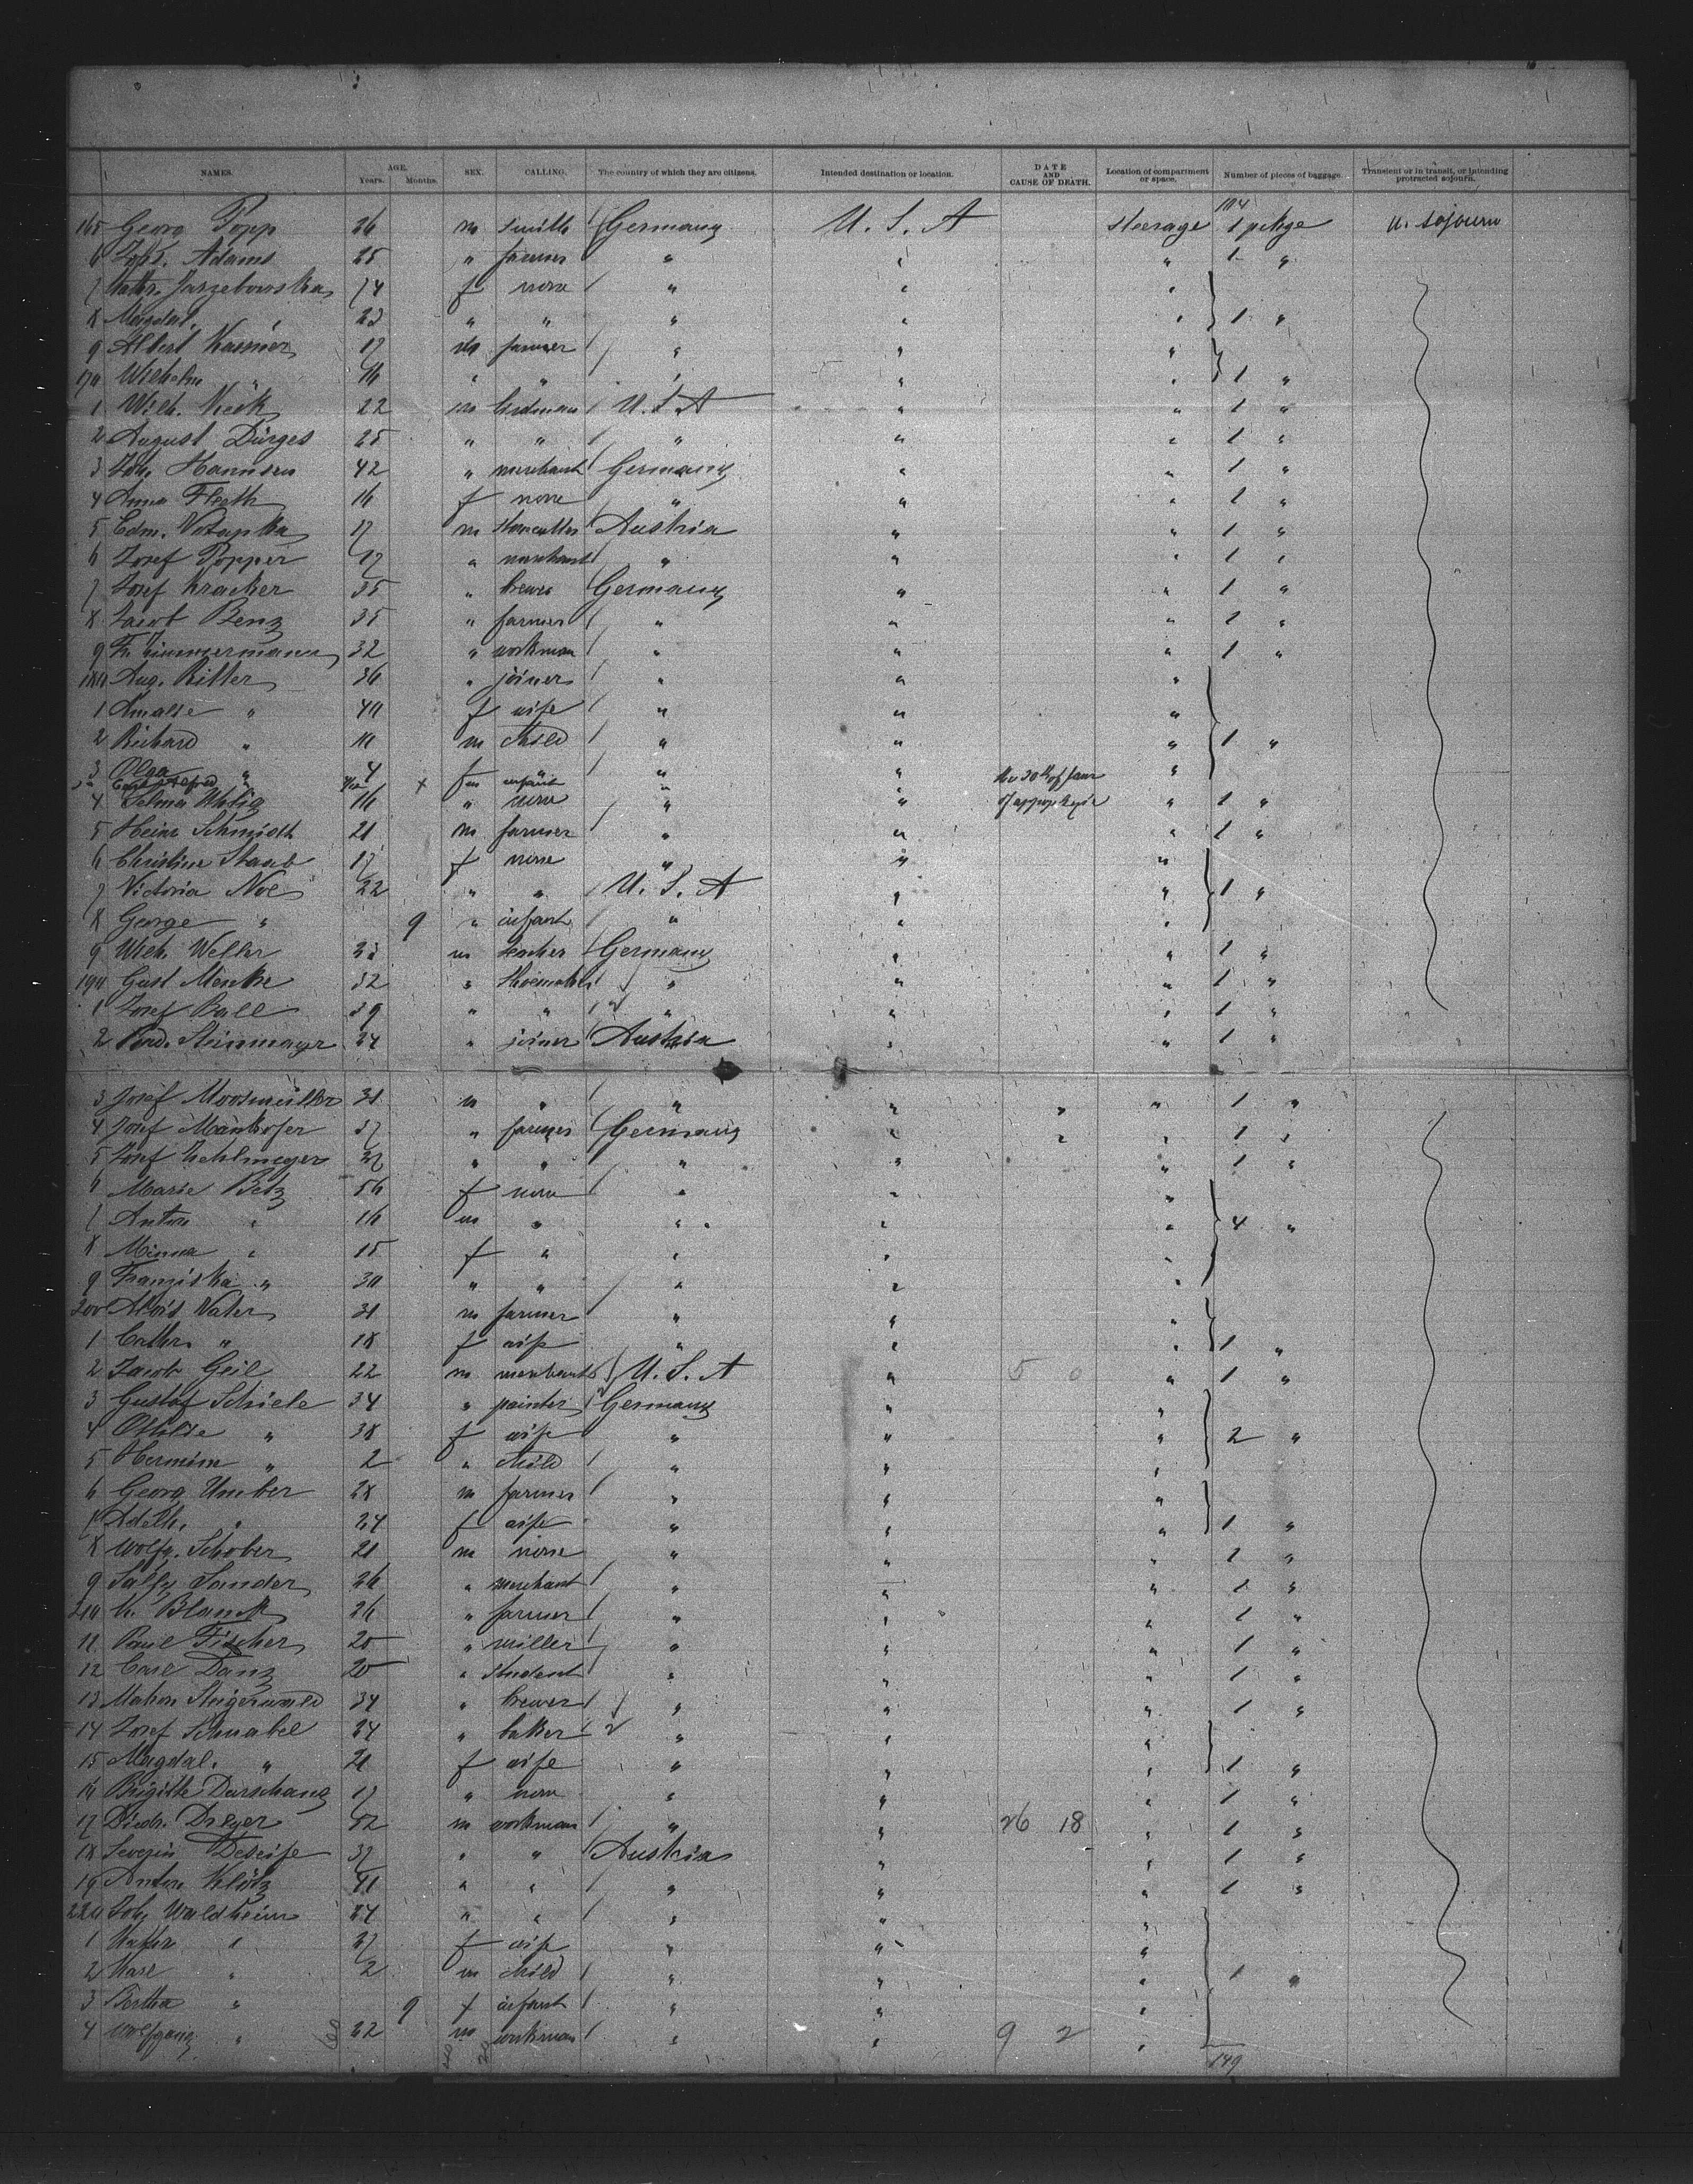 NAMES. AGE. Years. Months. SEX. CALLING. The country of which they are citizens. Intended destination or location. DATE AND CAUSE OF DEATH. Location of compartment or space. Number of pieces of baggage. Transient or in transit, or intending protracted sojourn.
104
165 Georg Popp 26 m smith Germany U. S. A steerage 1 pckge u. sojourn
6 Adams 25 " farmer " " " 1 "
7 Jarzebowska 74 f none " " "
8 Magdal. " 23 " " " " " 1 "
9 Albert Kasmer 17 m farmer " " "
170 Wilhelm " 16 " " " " " 1 "
1 Wilh. Keck 22 m U. S. A " " 1 "
2 August Dürges 25 " " " " " 1 "
3 Joh. Hannsen 42 " merchant Germany " " 1 "
4 Anna Fleth 16 f none " " " 1 "
5 Edm. Votapka 17 m stonecutter Austria " " 1 "
6 Josef Popper 17 " merchant " " " 1 "
7 Josef Kracker 35 " brewer Germany " " 1 "
8 Jacob Benz 35 " farmer " " " 1 "
9 Fr. Zimmermann 32 " workman " " " 1 "
180 Aug. Ritter 36 " joiner " " "
1 Amalie " 40 f wife " " "
2 Richard " 10 m child " " " 1 "
3 Olga " 4 f " " " "
3a " infant " the 20th of Jan
4 Selma Uhlig 16 " none " " of appoplexie " 1 "
5 Heinr. Schmidt 21 m farmer " " " 1 "
6 Christine Staub 17 f none " " "
7 Victoria Noe 22 " " U. S. A " " 1 "
8 George " 9 " infant " " "
9 Wilh. Weller m Germany " " 1 "
190 Gust Menke 32 " " " " 1 "
1 Josef Ball 39 " " " " " 1 "
2 Ferd. Steinmayer 24 " joiner Austria " " 1 "
3 Josef Moosmüller 31 m " " " " " 1 "
4 Josef Mankofer 37 " farmer Germany " " " 1 "
5 Josef " " " " " 1 "
6 Marie Betz 56 f none " " "
7 Anton " 16 m " " " " 4 "
8 Minna " 15 f " " " "
9 Franziska " 30 " " " " "
200 Alois Vater 31 m farmer " " "
1 Cathr. " 18 f wife " " " 1 "
2 Jacob Geil 22 m merchant U. S. A " 5 0 " 1 "
3 Gustaf Schiele 34 " painter Germany " "
4 Othilde " 38 f wife " " " 2 "
5 Hermine " 2 " child " " "
6 Georg Umber 28 m farmer " " "
7 Adelh. " 24 f wife " " " 1 "
8 Wolfg. Schober 21 m none " " " 1 "
9 Sally Sander 26 " merchant " " " 1 "
210 K. Blanck 26 " farmer " " " 1 "
11 Paul Fischer 20 " miller " " " 1 "
12 Carl Danz 20 " student " " " 1 "
13 Steigerwald 34 " brewer " " " 1 "
14 Josef Schnabel 24 " baker " " "
15 Magdal. " 21 f wife " " " 1 "
16 Brigitte Darschang 17 " none " " " 1 "
17 Diedr. Dreyer 52 m workman " " 26 18 " 1 "
18 Severin Deseife 37 " " Austria " " 1 "
19 Anton Klötz 41 " " " " " 1 "
220 Joh. Waldheim 24 " " " " "
1 " 27 f wife " " "
2 Karl " 2 m child " " " 1 "
3 Bertha " 9 f infant " " "
4 Wolfgang " 22 m workman " " 9 2 "
60 149